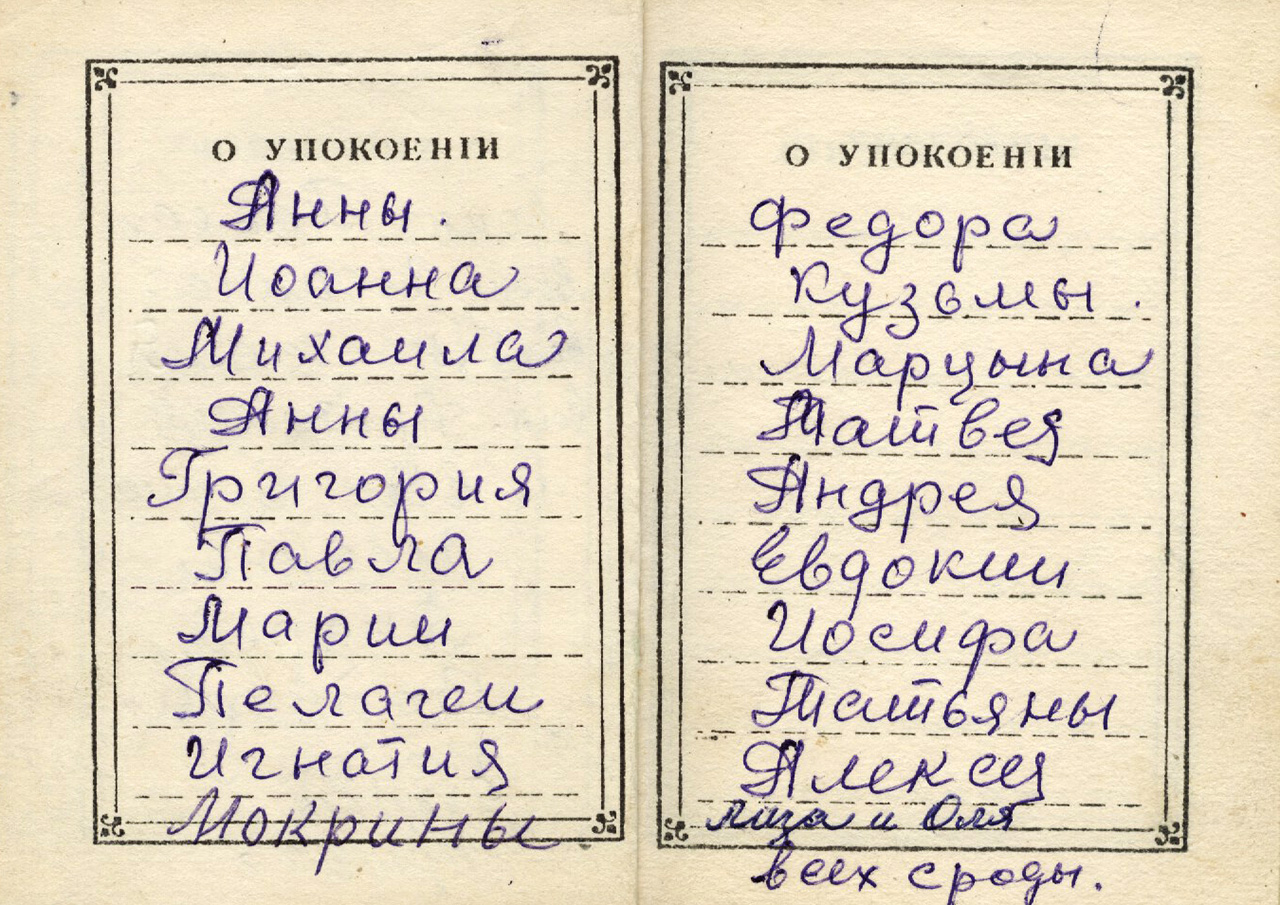 О УПОКОЕНІИ
Анны.
Иоанна
Михаила
Анны
Григория
Павла
Марии
Пелагеи
Игнатия
Мокрины
О УПОКОЕНІИ
Федора
Кузьмы.
Марцына
Матвея
Андрея
Евдокии
Иосифа
Татьяны
Алексея
Лиза и Оля
всех сроды.